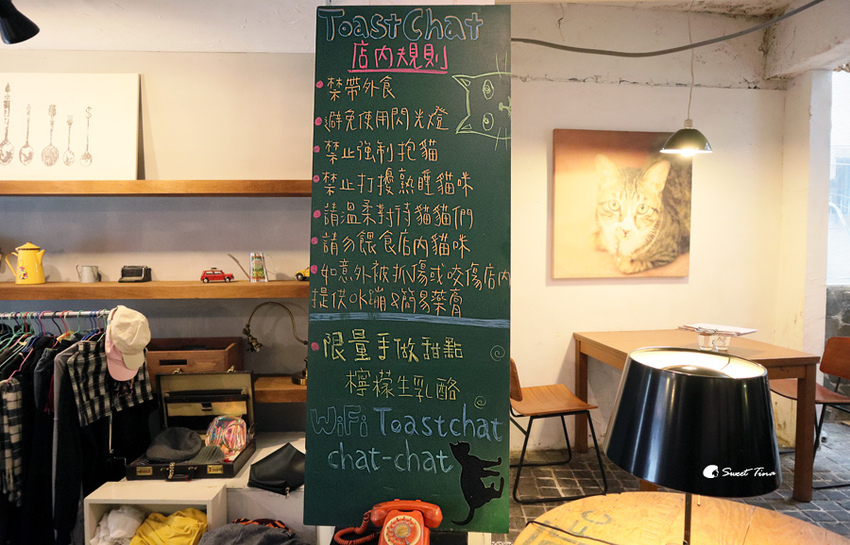 ToastChat
店內規則
禁帶外食
避免使用閃光燈
禁止強制抱貓
禁止打擾熟睡貓咪
請溫柔對待貓貓們
請勿餵食店內貓咪
如意外被抓傷或咬傷店內
提供OK蹦&簡易藥膏
限量手做甜點
檸檬生乳酪
WiFi Toastchat
chat-chat
Sweet Tina